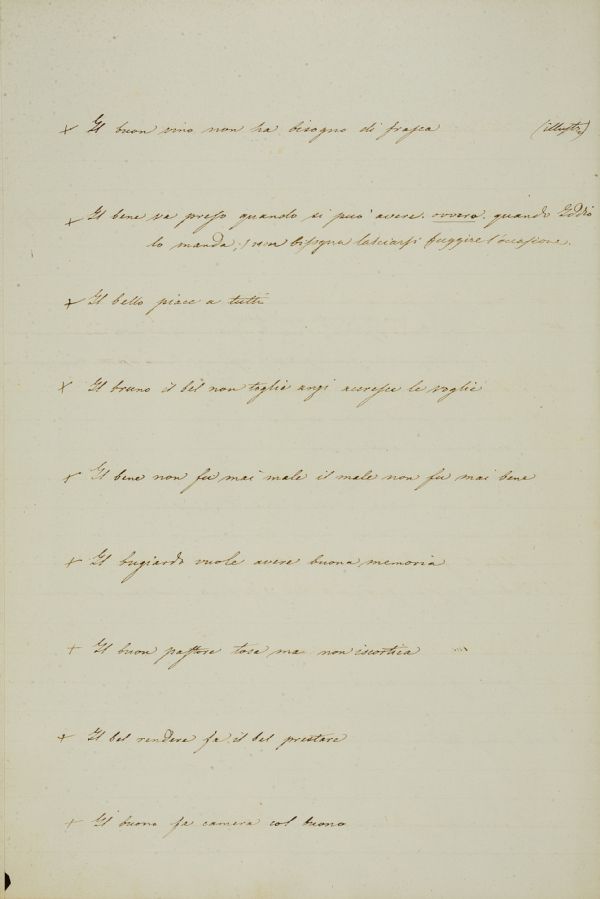 × Il buon vino non ha bisogno di frasca (illustr.)
× Il bene va preso quando si può avere. ovvero. quando Iddio
lo manda, (non bisogna lasciarsi fuggire l'occasione.
× Il bello piace a tutti
× Il bruno il bel non toglie anzi accresce le voglie
× Il bene non fu mai male il male non fu mai bene
× Il bugiardo vuole avere buona memoria
+ Il buon pastore tosa ma non iscortica
× Il bel rendere fa il bel prestare
+ Il buono fa camera col buono